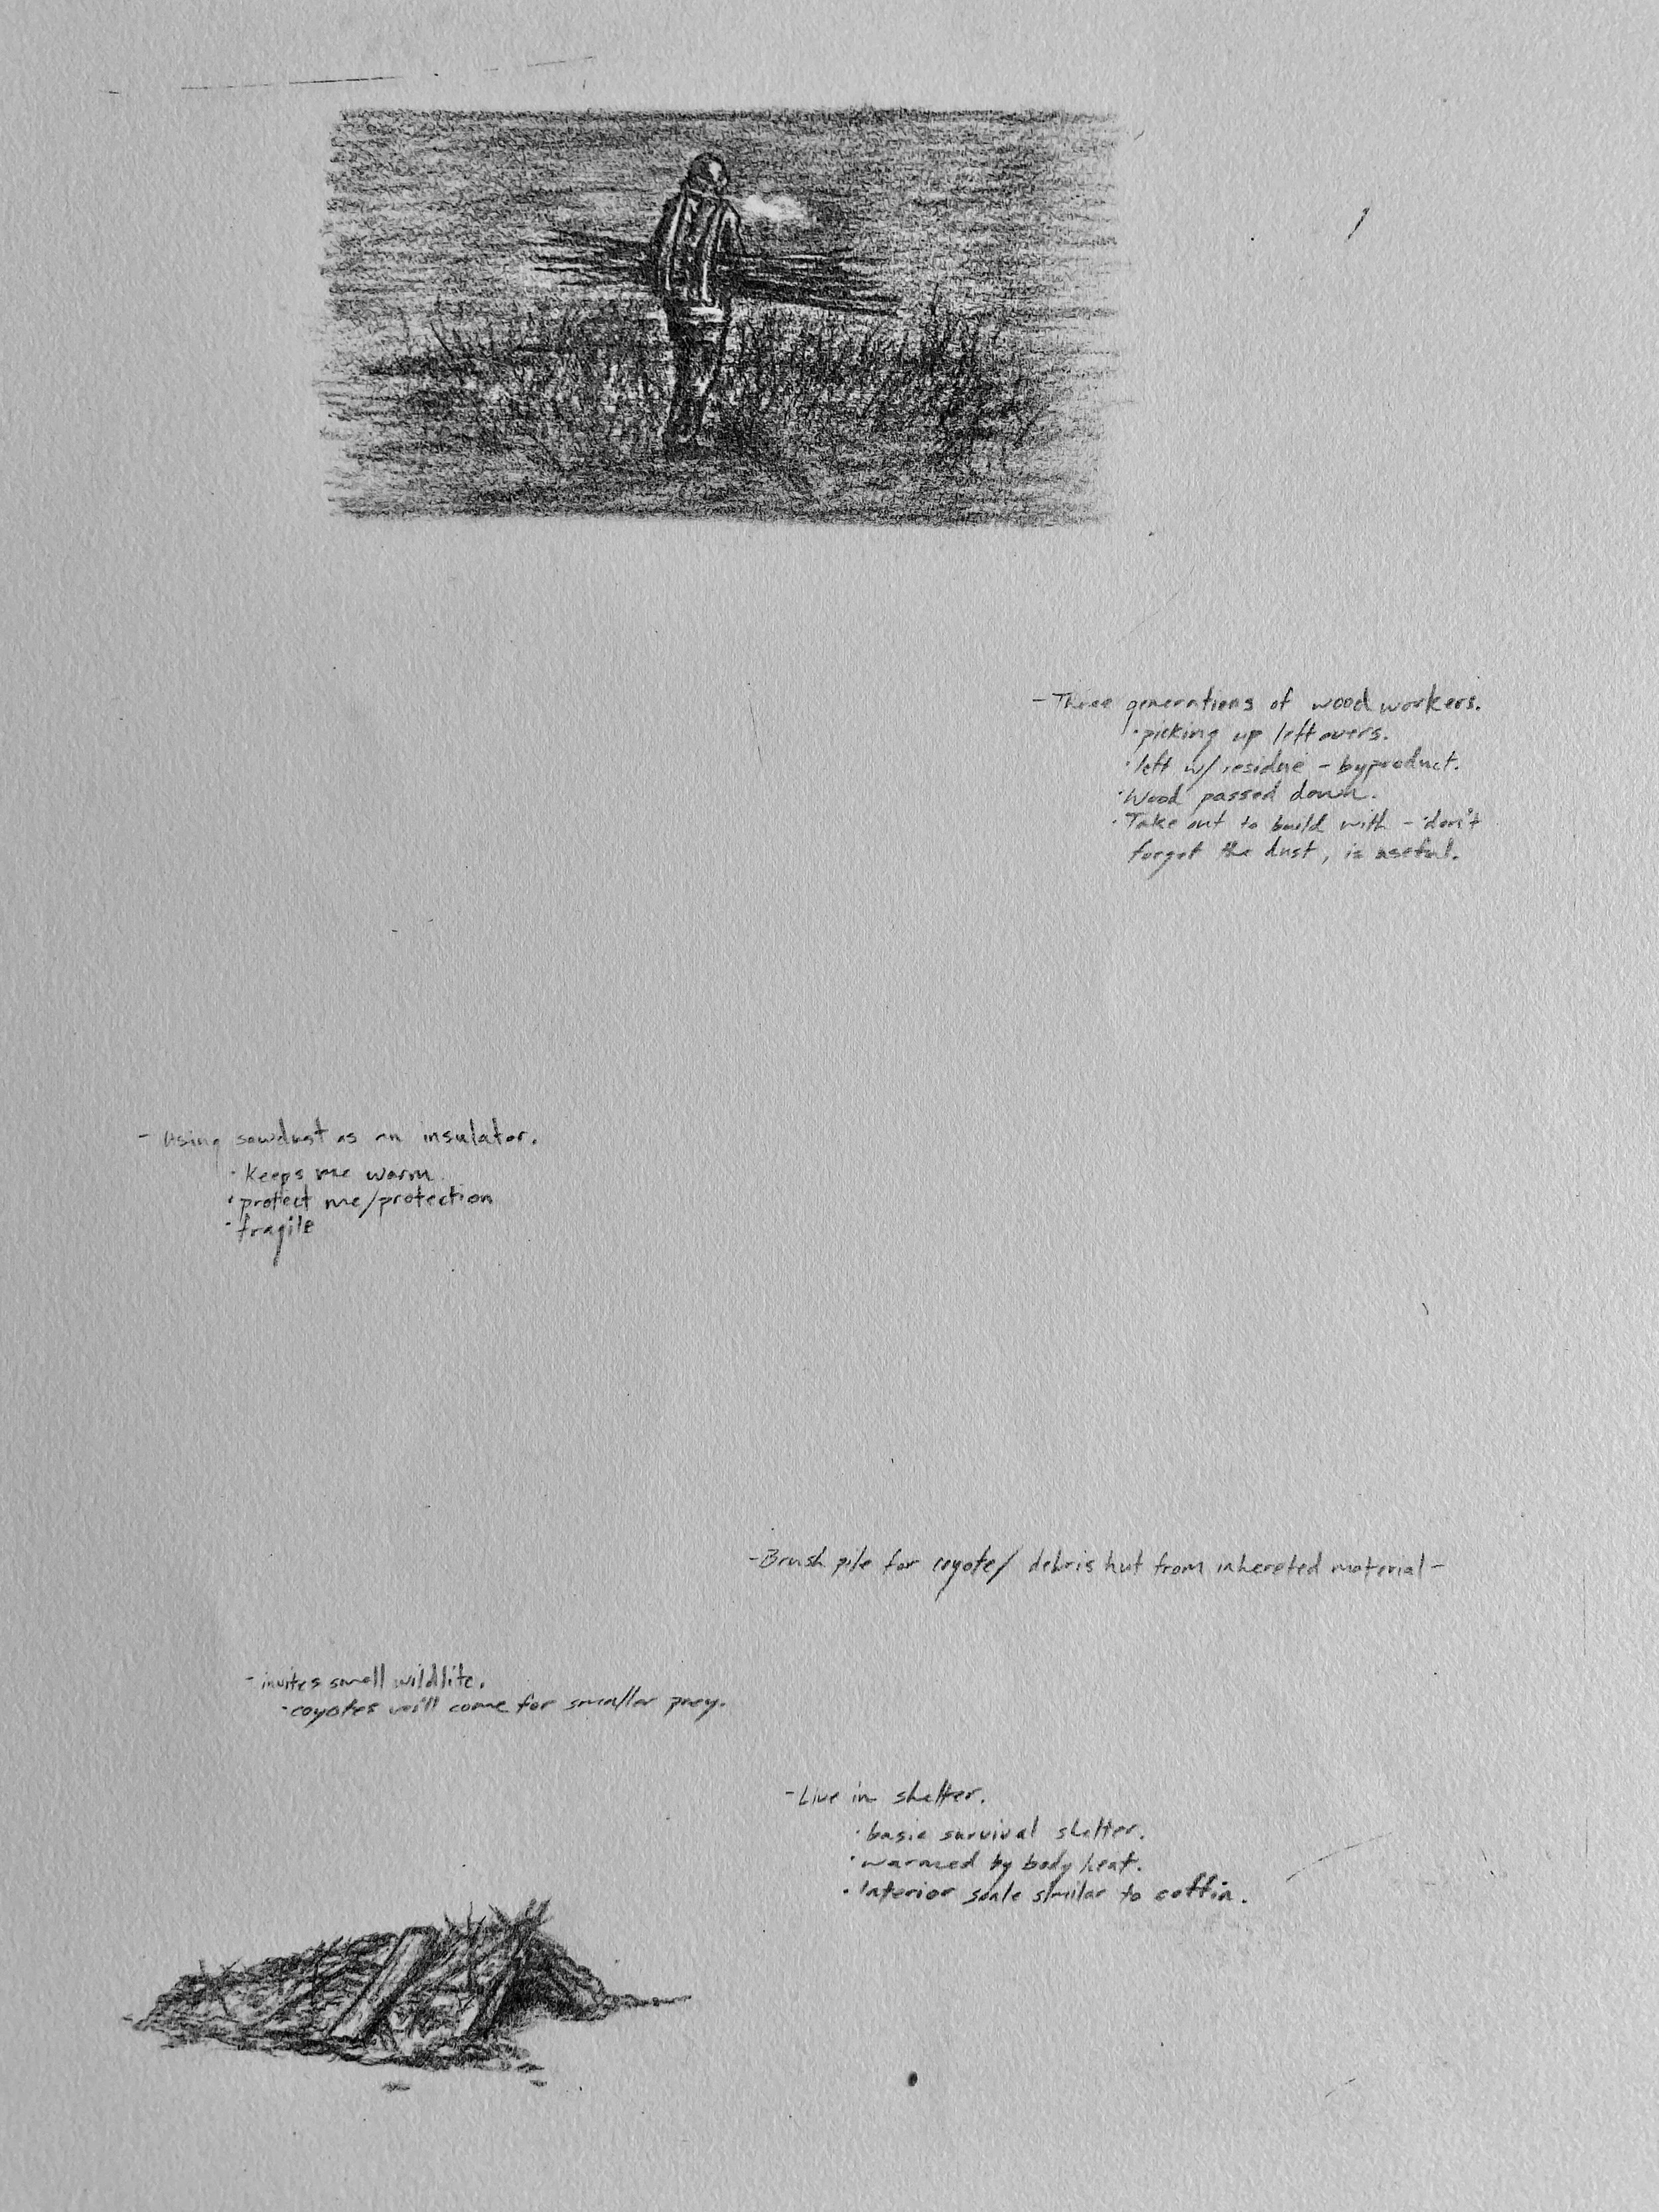 - Three generations of wood workers.
· picking up leftovers.
· left w/ residue - byproduct.
· Wood passed down.
· Take out to build with - don't
forget the dust, is useful.
- Using sawdust as an insulator.
· Keeps me warm
· protect me/protection
· fragile
- Brush pile for coyote/ debris hut from inhereted material -
- invites small wildlife.
- coyotes will come for smaller prey.
- Live in shelter.
· basic survival shelter.
· warmed by body heat.
· Interior scale similar to coffin.